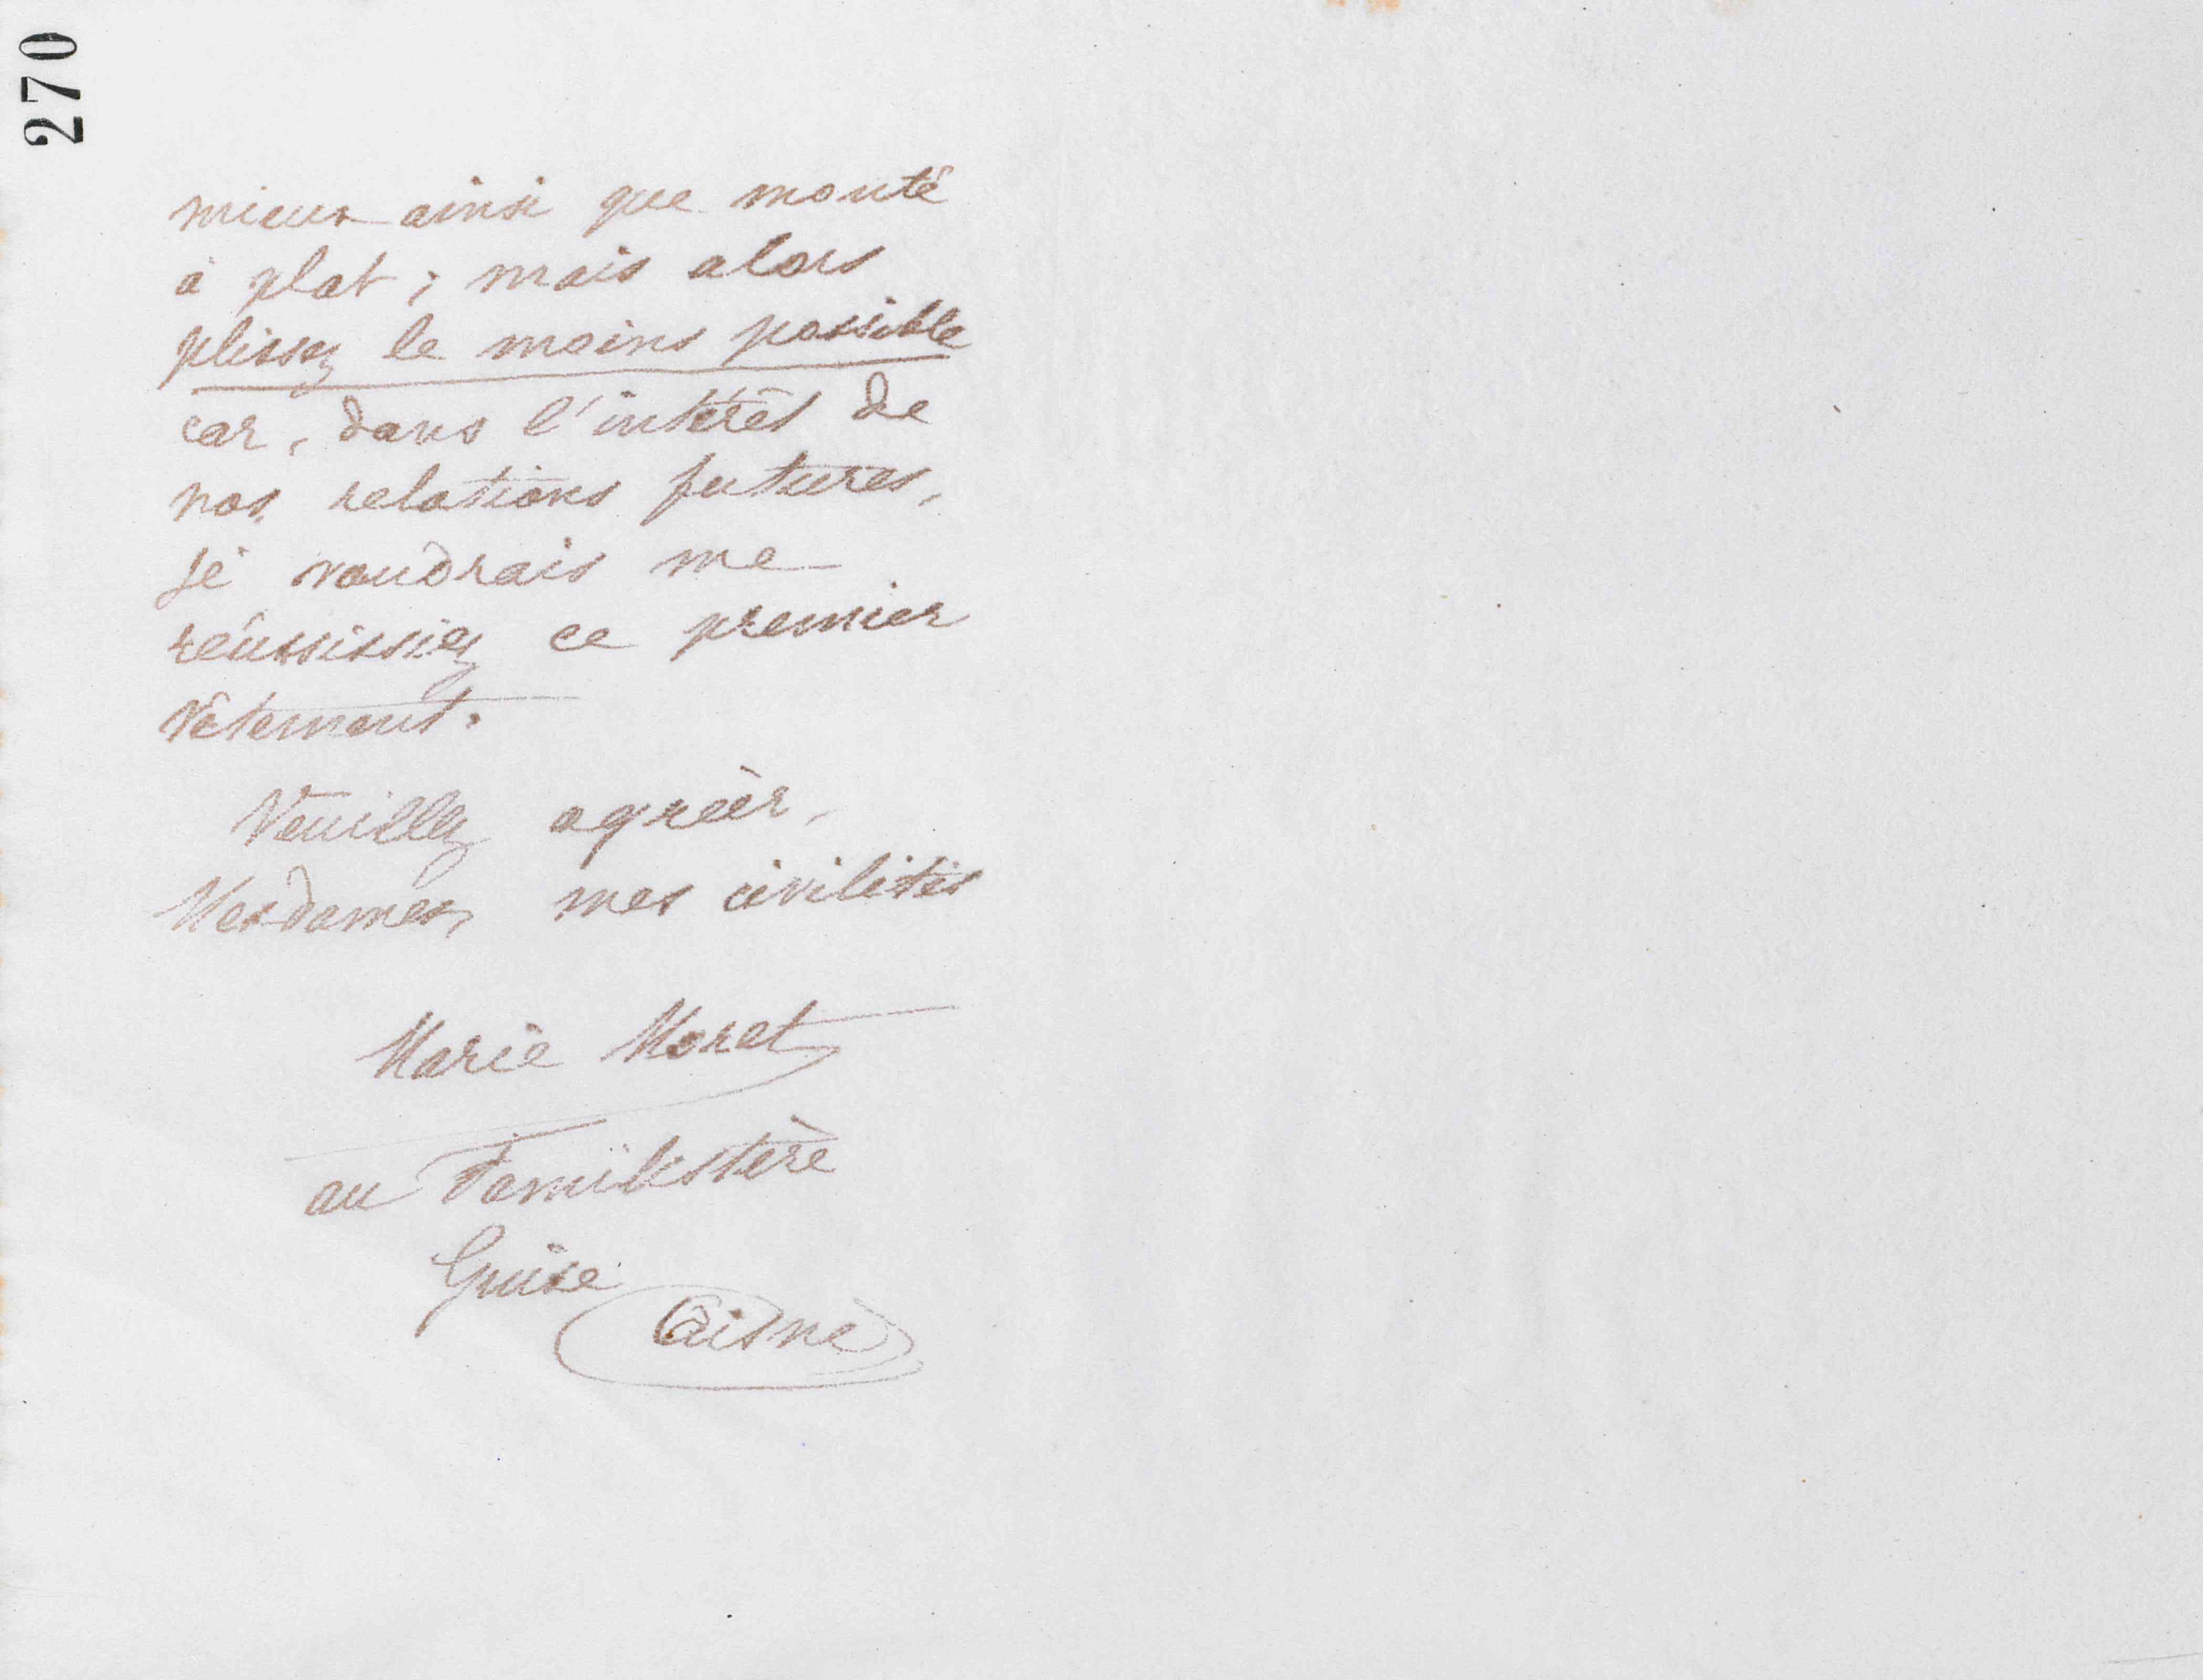 270
mieux ainsi que monté
à plat ; mais alors
plissez le moins possible
car, dans l'intérêt de
nos relations futures,
je voudrais me
réussissiez ce premier
vêtement.
Veuillez agréer,
Mesdames, mes civilités
Marie Moret
au Familistère
Guise
Aisne